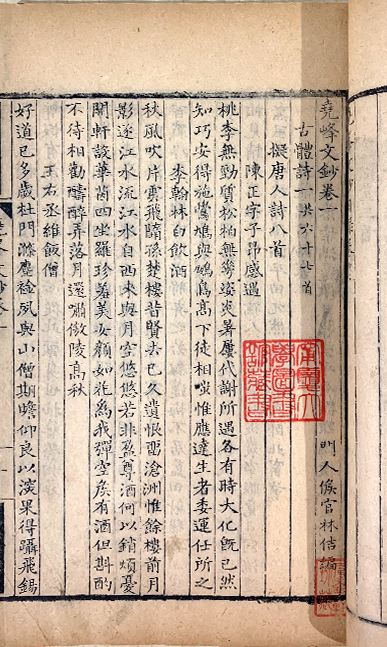 堯峰文鈔卷一
門人侯官林佶編
古體詩一共六十七首
擬唐人詩八首
陳正字子昂感遇
桃李無勁質松柏無姿炎暑屢代謝所遇各有時大化旣已然
知巧安得施鳩與鳥高下徒相嗤惟應達生者委運任所之
李翰林白飲酒
秋風吹片雲飛墮孫楚樓昔賢去已久遺恨畱滄洲惟餘樓前月
影逐江水流江水自西來與月空悠悠若非盈尊酒何以銷煩憂
開軒設華茵四坐羅珍羞美女顏如花為我彈空矦有酒但斟酌
不待相勸醉弄落月還嘯傲陵高秋
王右丞維飯僧
好道已多歲杜門滌塵襟夙與山僧期瞻仰良以深果得躡飛錫